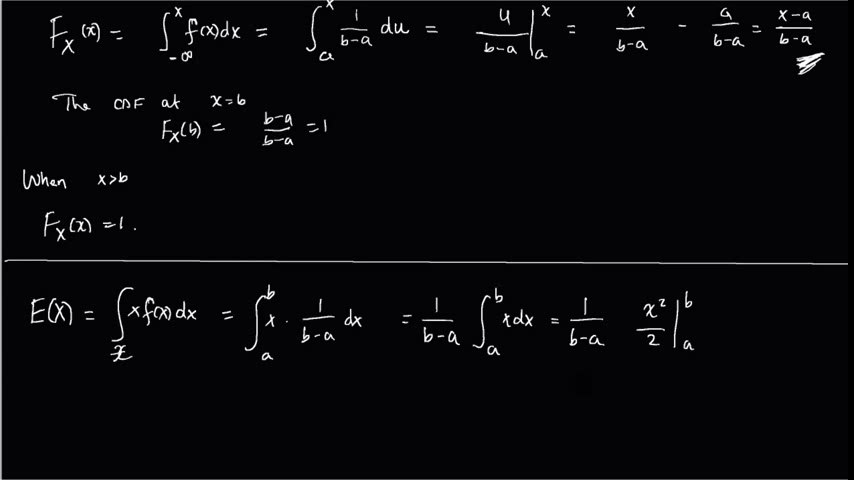 F_X(x) = ∫_{-∞}^{x} f(x)dx = ∫_{a}^{x} 1/(b-a) du = u/(b-a) |_{a}^{x} = x/(b-a) - a/(b-a) = (x-a)/(b-a)
The CDF at x=b
F_X(b) = (b-a)/(b-a) = 1
When x>b
F_X(x) = 1.
E(X) = ∫_{x} x f(x)dx = ∫_{a}^{b} x · 1/(b-a) dx = 1/(b-a) ∫_{a}^{b} x dx = 1/(b-a) x²/2 |_{a}^{b}